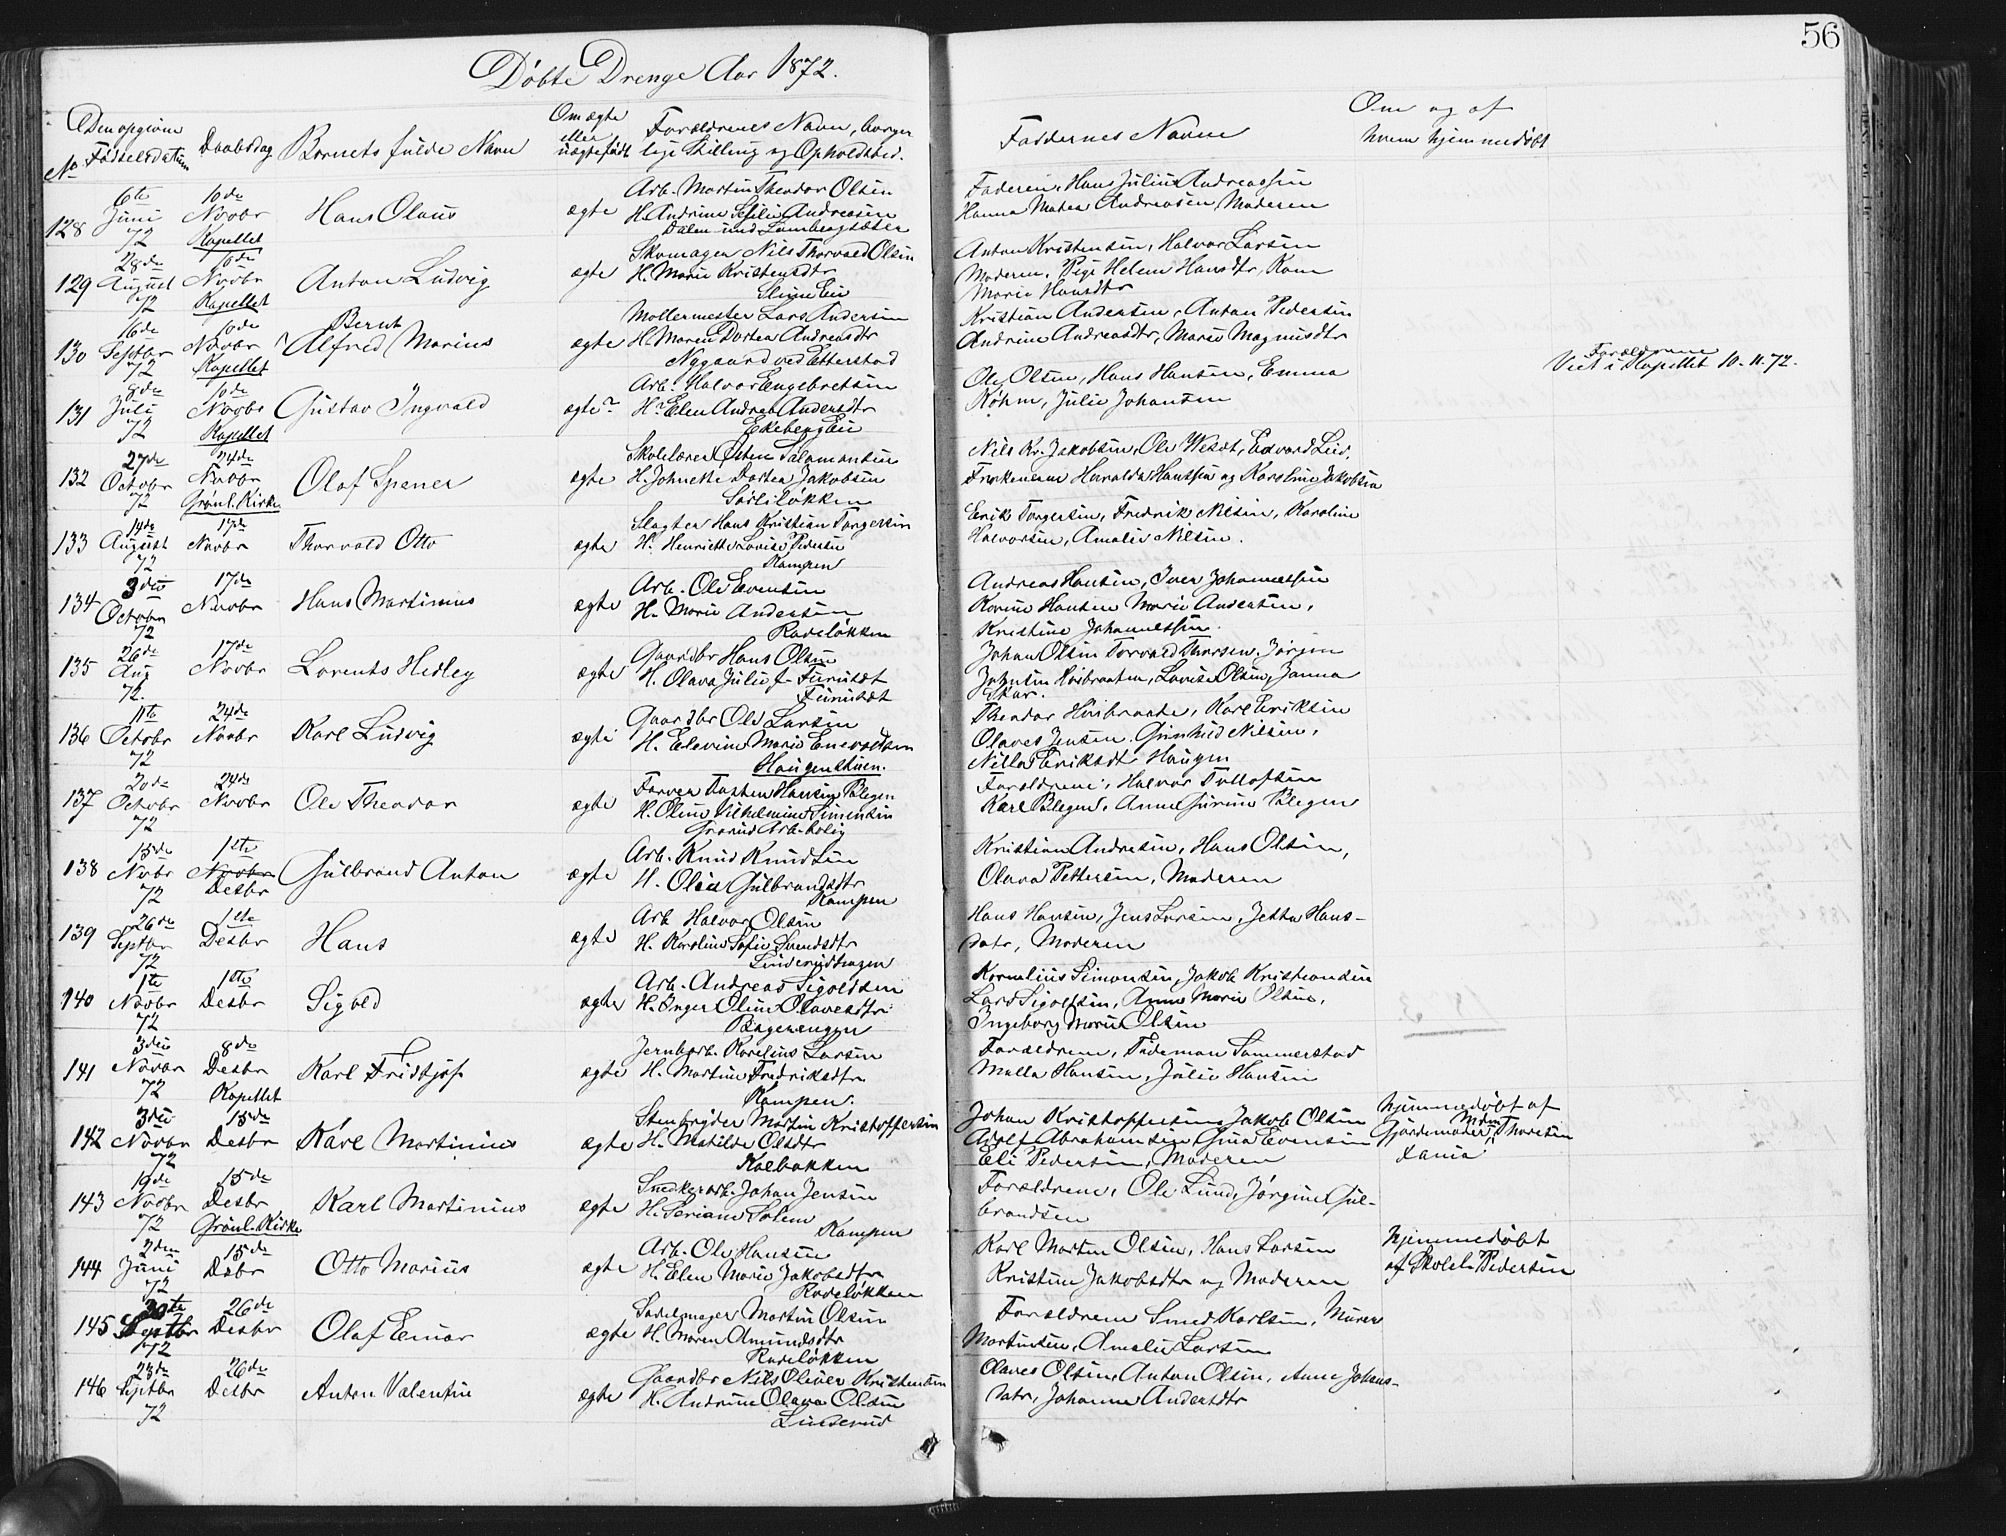 56
Døbte Drenge Aar 1872.
No Den opgivne Fødselsdatum Daabsdag Barnets fulde Navn Om ægte eller uægte født Forældrenes Navn, borgerlige Stilling og Opholdssted. Faddernes Navne Om og af hvem hjemmedøbt
128 6te Juni 72 10de Novbr Kapellet Hans Olaus ægte Arb. Martin Theodor Olsen
H. Andrine Andreasen
Dalen
Faderen, Hans Julius Andreassen
Hanna Andreasen, Moderen
129 28de August 72 10de Novbr Kapellet Anton Ludvig ægte Skomager Nils Thorvald Olsen
H. Marie Kristensdtr
Anton Kristensen, Halvor Larsen
Moderen, Pige Helene Hansdtr, Kone
Marie Hansdtr
130 16de Septbr 72 10de Novbr Kapellet Bernt Alfred Marius ægte Møllermester Lars Andersen
H. Maren Dortea Andreasdtr
Nygaard ved Etterstad
Kristian Andersen, Anton Pedersen
Andrine Andreasdtr, Maren Magnusdtr
131 8de Juli 72 10de Novbr Kapellet Gustav Ingvald ægte? Arb. Halvor Engebretsen
H? Elen Andrea Andersdtr
Ekeberg Eie
Ole Olsen, Hans Hansen, Emma
Røhm, Julie Johansen
Forældrene
Viet i Kapellet 10-11-72.
132 27de Octobr 72 24de Novbr Grønl. Kirke Olaf Spener ægte Skolelærer Østen Salamonsen
H. Johnette Dortea Jakobsen
Sørliløkken
Nils Kr. Jakobsen, Ole Wesdt, Edvard Lid,
Frøkenerne Haralda Hanssen og Karoline Jakobsen
133 14de August 72 17de Novbr Thorvald Otto ægte Slagter Hans Kristian Torgersen
H. Henriette Lovise Pedersen
Kampen
Erik Torgersen, Fredrik Nilsen, Karoline
Halvorsen, Amalie Nilsen.
134 3die Octobr 72 17de Novbr Hans Martinius ægte Arb. Ole Evensen
H. Marie Andersen
Rodeløkken
Andreas Hansen, Iver Johannessen
Karine Hansen Marie Andersen,
Kristine Johannessen.
135 26de Aug 72. 17de Novbr Lorents Hedley ægte Gaardbr Hans Olsen
H. Olava Julie f. Furuset
Furuset
Johan Olsen Torvald Thorsen, Jørgen
Johnsen Høibraaten, Lovise Olsen, Janna
Skar.
136 11te Octobr 72 24de Novbr Karl Ludvig ægte Gaardbr Ole Larsen
H. Elevine Marie Enevoldsen
Haugenstuen.
Theodor Høibraate, Karl Eriksen
Olaves Jensen, Gunhild Nilsen,
Nilla Eriksdt Haugen
137 20de Octobr 72 24de Novbr Ole Theodor ægte Farver Torsten Hansen Blegen
H. Oline Vilhelmine Simensen
Grorud Arb-bolig
Forældrene, Halvor Tollofsen
Karl Blegen, Anne Gurine Blegen
138 15de Novbr 72 1ste Novbr Desbr Gulbrand Anton ægte Arb. Knud Knudsen
H. Olea Gulbrandsdtr
Kampen
Kristian Andresen, Hans Olsen,
Olava Pettersen, Moderen
139 26de Septbr 72 1ste Desbr Hans ægte Arb Halvor Olsen
H. Karoline Sofie Svendsdtr
Linderudhagen
Hans Hansen, Jens Larsen, Jetta Hans-
datr, Moderen
140 1te Novbr 72 1ste Desbr Sigvld ægte Arb. Andreas Sigvldsen
H. Inger Oline Olavesdtr
Bagerengen
Kornelius Simonsen, Jakob Kristiansen
Lars Sigvldsen, Anne Marie Olsen,
Ingeborg Marie Olsen
141 3die Novbr 72 8de Desbr Kapellet Karl Fridtjof ægte Jernbarb. Karelius Larsen
H. Martine Fredriksdtr
Kampen.
Forældrene, Tideman Sommerstad
Malla Hansen, Julie Hansen
142 3die Novbr 72 15de Desbr Kárl Martinius ægte Stenbryder Martin Kristoffersen
H. Matilde Olsdtr
Kalbakken
Johan Kristoffersen, Jakob Olsen
Adolf Abrahamsen, Gina Evensen
Eli Pedersen, Moderen
hjemmedøbt af
Gjordemoder Mdm Thoresen
143 19de Novbr 72 15de Desbr Grønl. Kirke Karl Martinius ægte Snedkerarb. Johan Jensen
H. Seriane Solem
Kampen
Forældrene, Ole Lund, Jørgine Gul-
brandsen
144 2den Juni 72 15de Dsbr Otto Marius ægte Arb. Ole Hansen
H. Elen Marie Jakobsdtr
Rodeløkken
Karl Morten Olsen, Hans Larsen
Kristine Jakobsdtr og Moderen
hjemmedøbt
af Skolel. Pedersen
145 30te Septbr 72 26de Desbr Olaf Einar ægte Sadelmager Martin Olsen
H. Maren Amundsdtr
Rodeløkken
Forældrene Smed Karlsen, Murer
Martinsen, Amalie Larsen
146 23de Septbr 72 26de Desbr Anton Valentin ægte Gaardbr Nils Oliver Kristensen
H. Andrine Olava Olsen
Linderud
Olaves Olsen, Anton Olsen, Anne Johans-
datr, Johanne Andersdtr